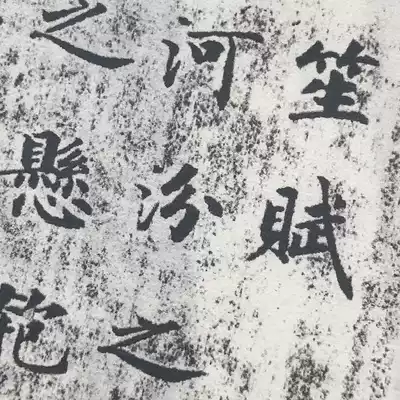 笙賦
河汾之
之懸匏